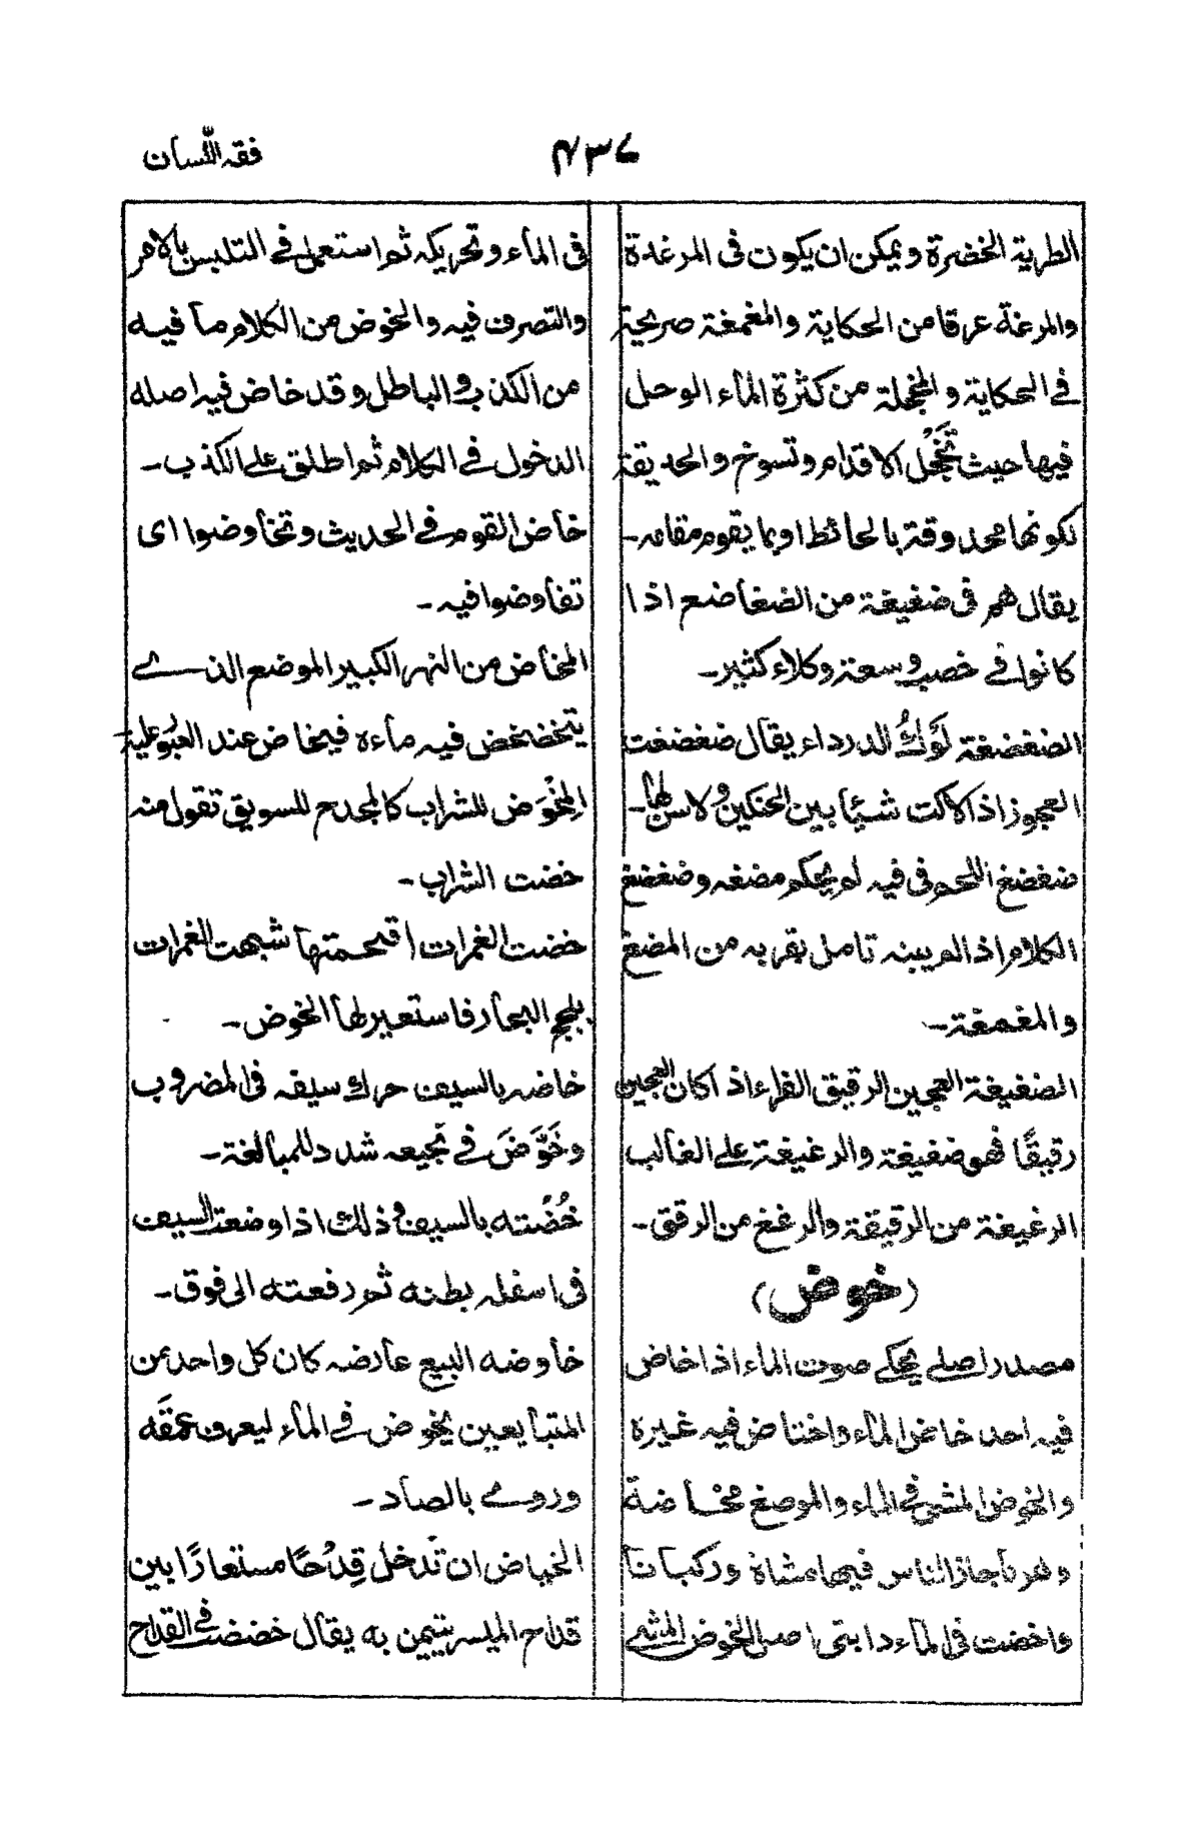 فقہ اللّسان
۴۳۷
الطرية الخضرة ويمكن ان يكون فى المرغدة
والمرغة عرقا من الحكاية والمغمغة صريحة
فے الحكاية والمخجلة من كثرة المآء الوحل
فيها حيث تَخْجَل الاقدام وتسوخ والحديقة
لكونها محدوقة بالحائط او بما يقوم مقامه۔
يقال هم فى ضغيغة من الضغاضع اذا
كانوا فے خصب وسعة وكلاء كثير۔
الضغضغة لَوْكُ الدرداء يقال ضغضغت
العجوز اذا لاكت شيئا بين الحنكين ولا سن لها۔
ضغضغ اللحم فى فيه لم يحكم مضغه وضغضغ
الكلام اذا لم يبينه تامل بقربه من المضغ
والمغمغة۔
الضغيغة العجين الرقيق الفراء اذا كان العجين
رقيقًا فهو ضغيغة والرغيغة علے الغالب
الرغيغة من الرقيقة والرغغ من الرقق۔
(خوض)
مصدر اصلے يحكے صوت الماء اذا خاض
فيه احد خاض المآء واختاض فيه غيره
والخوض المشى فے الماء والموضع مخاضة
وهو ما جاز الناس فيها مشاة وركبانا
واخضت فى المآء دابتى اصل الخوض المشے
فى المآء وتحريكه ثم استعمل فے التلبس بالامر
والتصرف فيه والخوض من الكلام ما فيه
من الكذب والباطل وقد خاض فيه اصله
الدخول فے الكلام ثم اطلق علے الكذب۔
خاض القوم فے الحديث وتخاوضوا اى
تفاوضوا فيه۔
المخاض من النهر الكبير الموضع الذے
يتخضخض فيه ماءه فيخاض عند العبُو عليه
المِخْوَض للشراب كالمجدح للسويق تقول منه
خضت الشراب۔
خضت الغمرات اقحمتها شبهت الغمرات
بلجج البحار فاستعير لها الخوض۔
خاضه بالسيف حرك سيفه فى المضروب
وخَوَّضَ فے نجيعه شدد للمبالغة۔
خُضْته بالسيف وذلك اذا وضعت السيف
فى اسفل بطنه ثم رفعته الى فوق۔
خاوضه البيع عارضه كان كل واحد من
المتبايعين يخوض فے المآء ليعرف عمقَه
وروے بالصاد۔
الخياض ان تُدخل قِدْحًا مستعارًا بين
قداح الميسر يتيمن به يقال خضخضت فے القداح